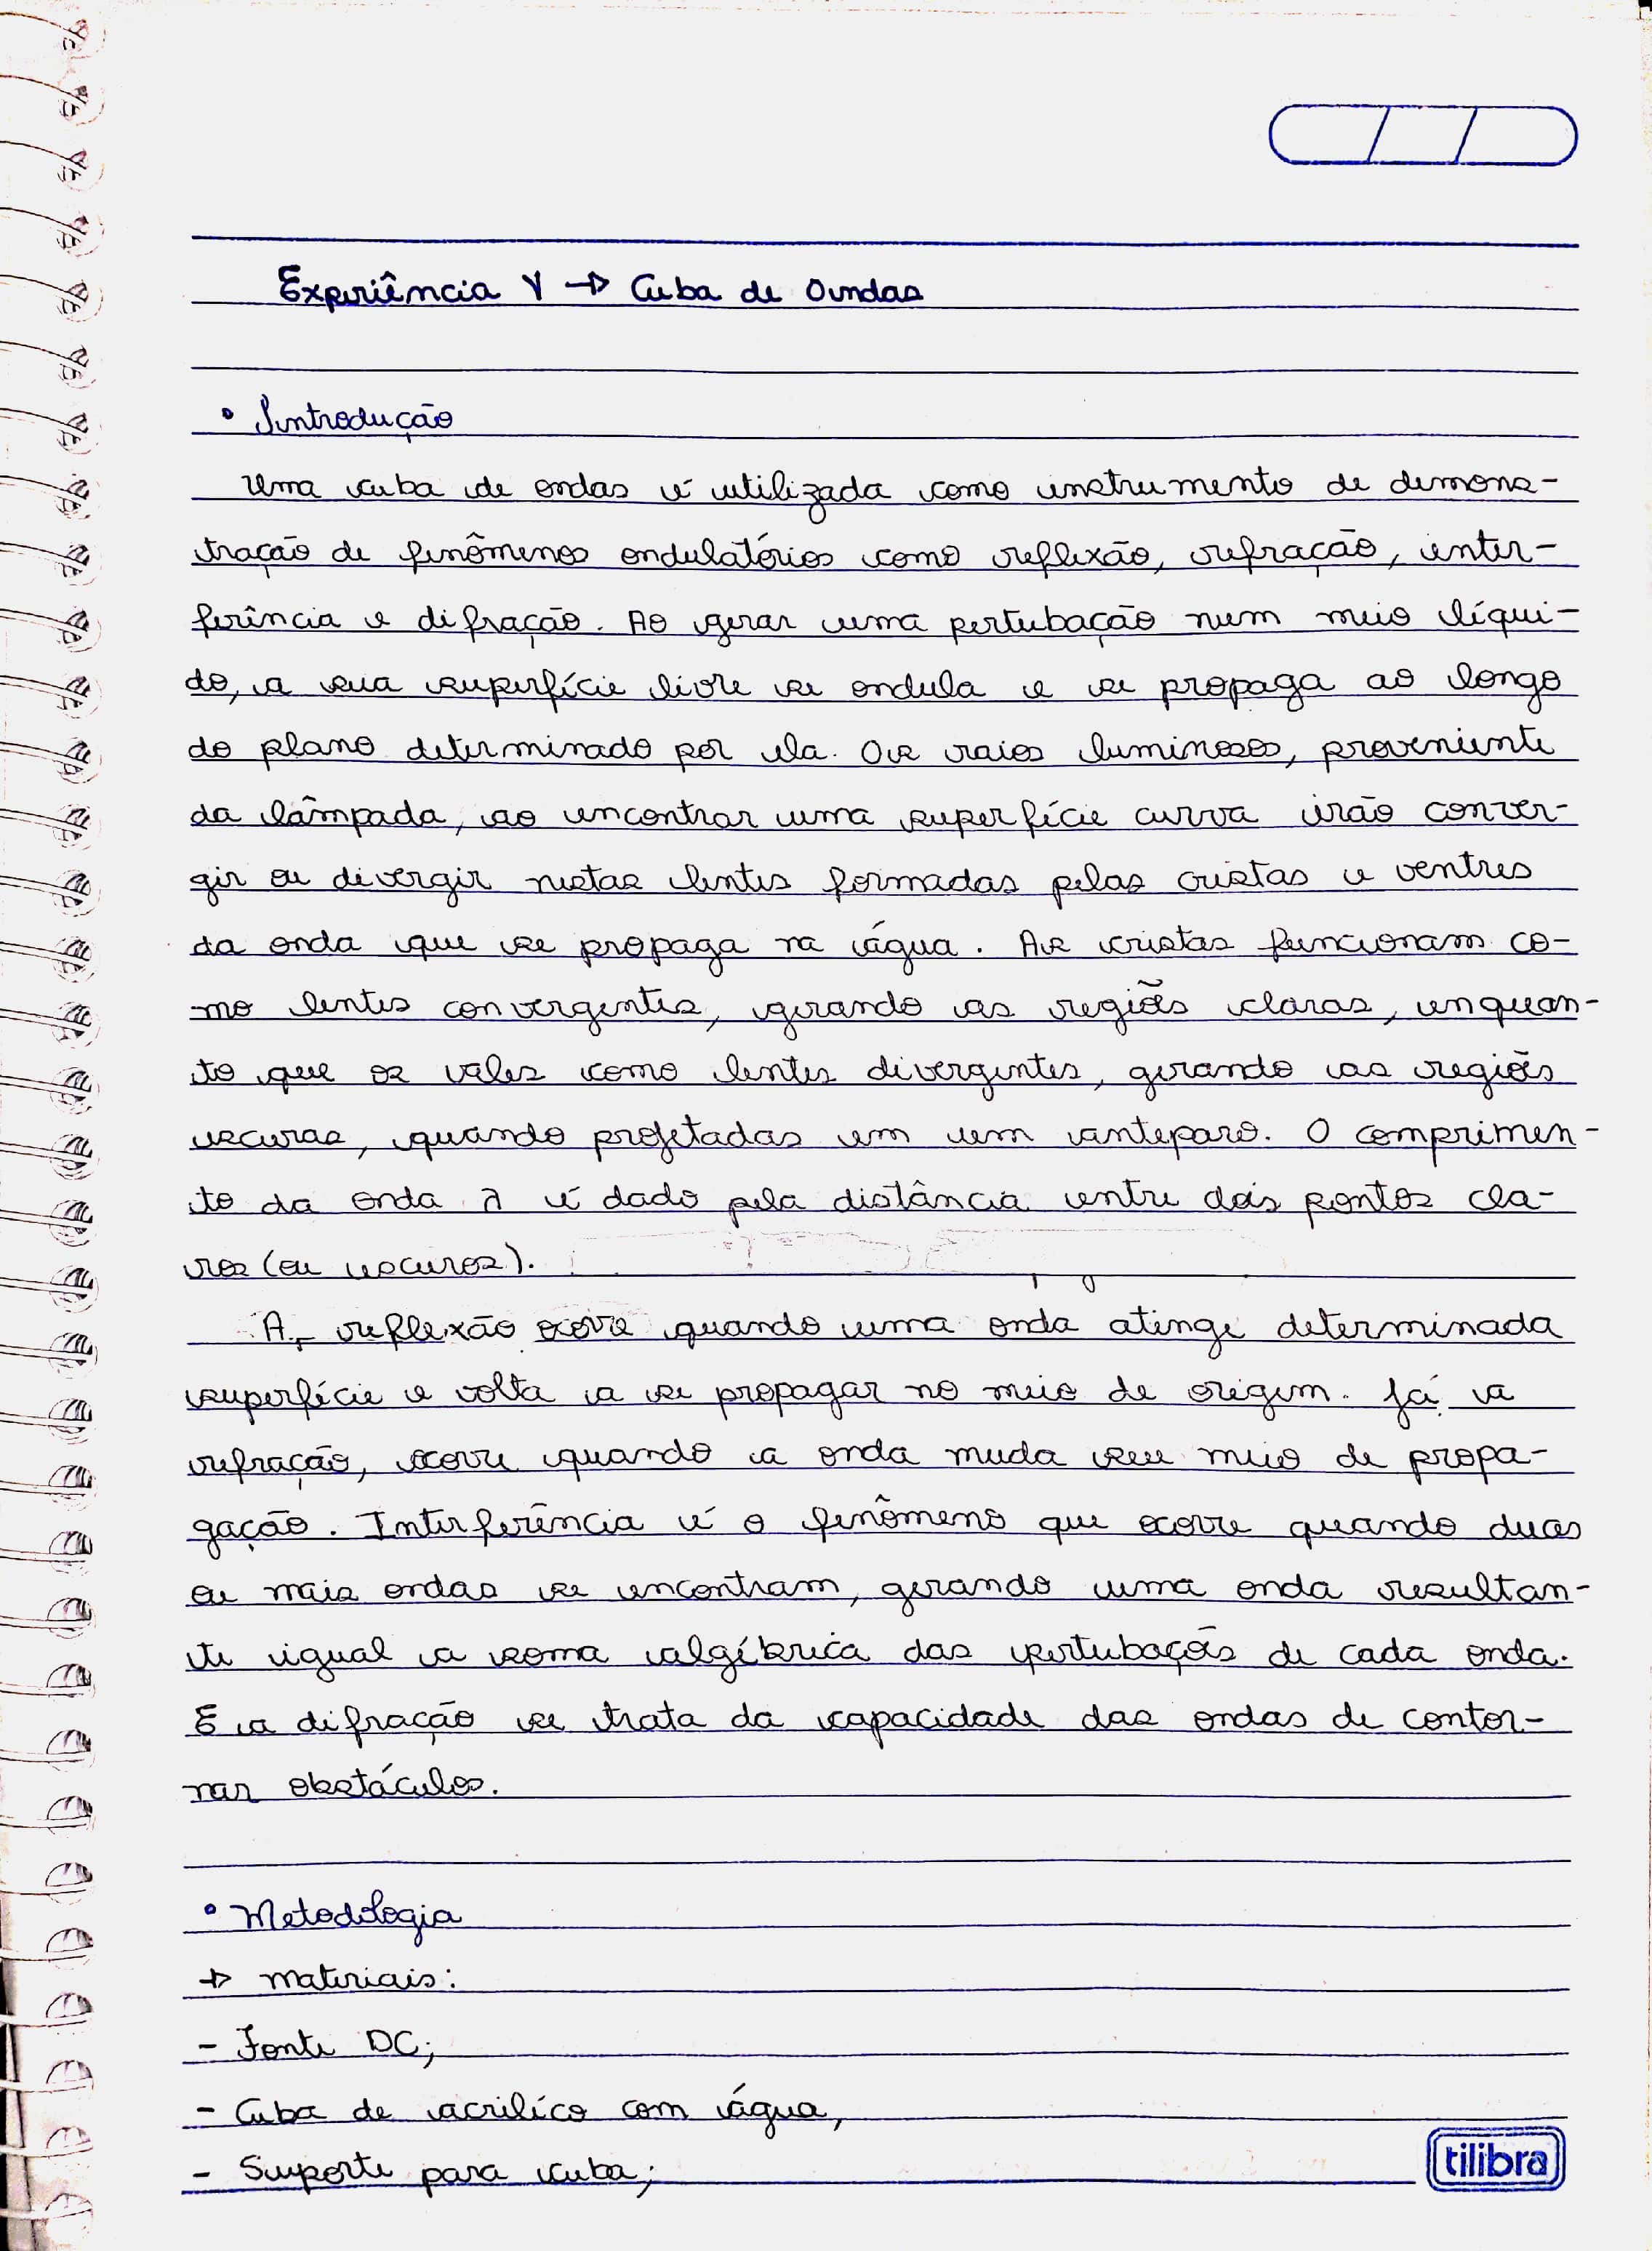 Experiência V → Cuba de Ondas
• Introdução
Uma cuba de ondas é utilizada como instrumento de demons-
tração de fenômenos ondulatórios como reflexão, refração, inter-
ferência e difração. Ao gerar uma pertubação num meio líqui-
do, a sua superfície livre se ondula e se propaga ao longo
do plano determinado por ela. Os raios luminosos, proveniente
da lâmpada, ao encontrar uma superfície curva irão conver-
gir ou divergir nestas lentes formadas pelas cristas e ventres
da onda que se propaga na água. As cristas funcionam co-
mo lentes convergentes, gerando as regiões claras, enquan-
to que os vales como lentes divergentes, gerando as regiões
escuras, quando projetadas em um anteparo. O comprimen-
to da onda λ é dado pela distância entre dois pontos cla-
ros (ou escuros).
A reflexão ocorre quando uma onda atinge determinada
superfície e volta a se propagar no meio de origem. Já a
refração, ocorre quando a onda muda seu meio de propa-
gação. Interferência é o fenômeno que ocorre quando duas
ou mais ondas se encontram, gerando uma onda resultan-
te igual a soma algébrica das pertubações de cada onda.
E a difração se trata da capacidade das ondas de contor-
nar obstáculos.
• Metodologia
→ materiais:
- Fonte DC;
- Cuba de acrilíco com água,
- Suporte para cuba;
tilibra